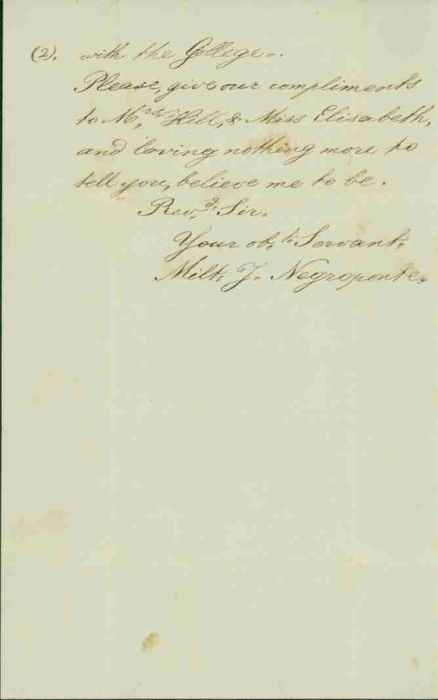 (2). with the College.
Please, give our compliments
to Mrs. Hill, & Miss Elisabeth,
and having nothing more to
tell you, believe me to be.
Revd. Sir.
Your obt. Servant,
Milt. J. Negroponte.